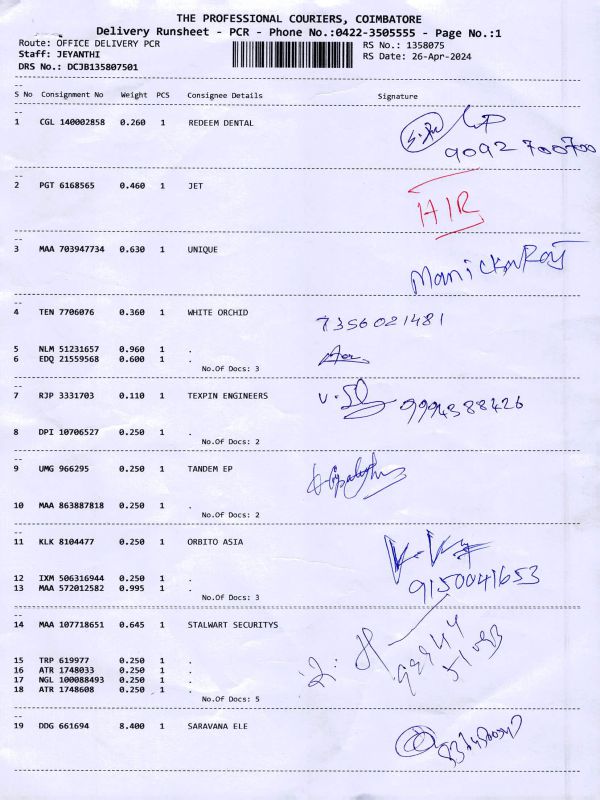 THE PROFESSIONAL COURIERS, COIMBATORE
Delivery Runsheet - PCR - Phone No.:0422-3505555 - Page No.:1
Route: OFFICE DELIVERY PCR
Staff: JEYANTHI
DRS No.: DCJB135807501
RS No.: 1358075
RS Date: 26-Apr-2024
S No Consignment No Weight PCS Consignee Details Signature
1 CGL 140002858 0.260 1 REDEEM DENTAL
9092700700
2 PGT 6168565 0.460 1 JET
HIR
3 MAA 703947734 0.630 1 UNIQUE
4 TEN 7706076 0.360 1 WHITE ORCHID
7356021481
5 NLM 51231657 0.960 1 .
6 EDQ 21559568 0.600 1 .
No.Of Docs: 3
7 RJP 3331703 0.110 1 TEXPIN ENGINEERS
9994388426
8 DPI 10706527 0.250 1 .
No.Of Docs: 2
9 UMG 966295 0.250 1 TANDEM EP
10 MAA 863887818 0.250 1 .
No.Of Docs: 2
11 KLK 8104477 0.250 1 ORBITO ASIA
12 IXM 506316944 0.250 1 .
9150041653
13 MAA 572012582 0.995 1 .
No.Of Docs: 3
14 MAA 107718651 0.645 1 STALWART SECURITYS
15 TRP 619977 0.250 1 .
16 ATR 1748033 0.250 1 .
17 NGL 100088493 0.250 1 .
18 ATR 1748608 0.250 1 .
No.Of Docs: 5
19 DDG 661694 8.400 1 SARAVANA ELE